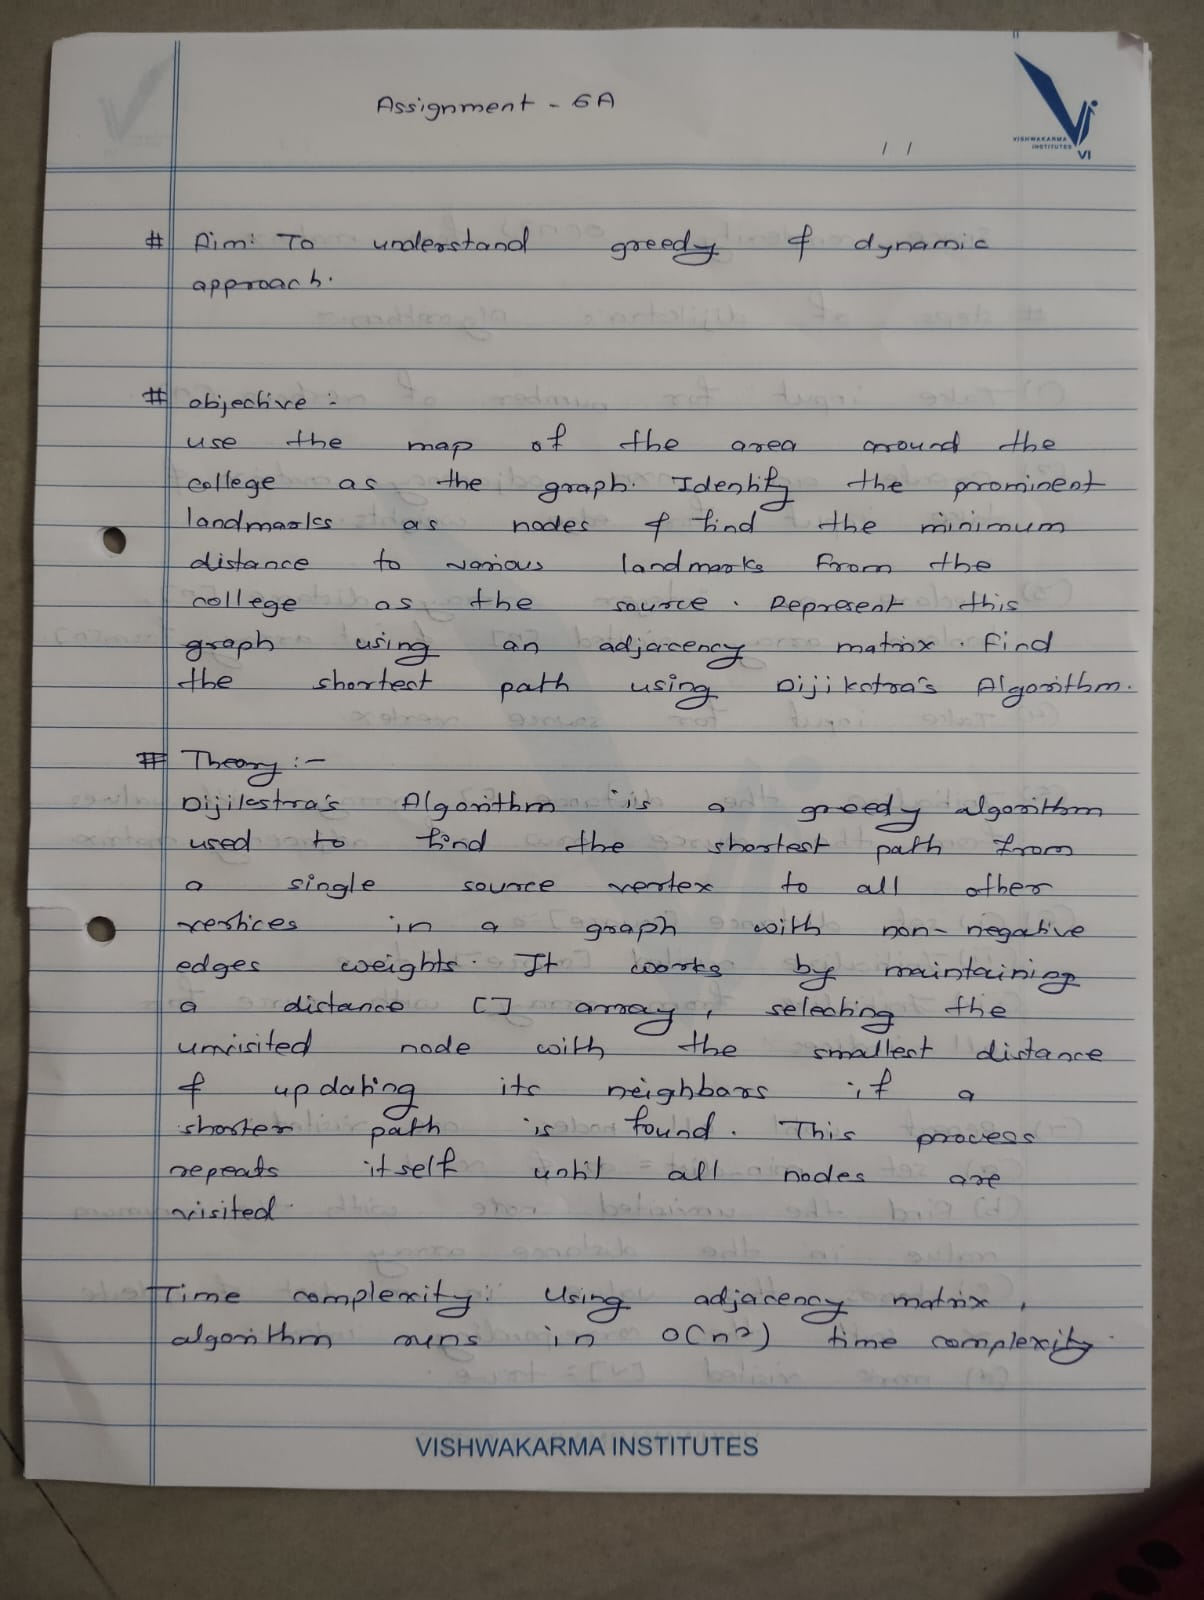 Assignment - 6A
/ /
VISHWAKARMA
INSTITUTES
VI
# Aim: To understand greedy & dynamic
approach.
# objective :
use the map of the area around the
college as the graph. Identify the prominent
landmarks as nodes & find the minimum
distance to various landmarks from the
college as the source. Represent this
graph using an adjacency matrix. Find
the shortest path using Dijikstra's Algorithm.
# Theory :-
Dijikstra's Algorithm is a greedy algorithm
used to find the shortest path from
a single source vertex to all other
vertices in a graph with non-negative
edges weights. It works by maintaining
a distance [] array, selecting the
unvisited node with the smallest distance
& updating its neighbors if a
shorter path is found. This process
repeats itself until all nodes are
visited.
Time complexity: Using adjacency matrix,
algorithm runs in O(n²) time complexity.
VISHWAKARMA INSTITUTES